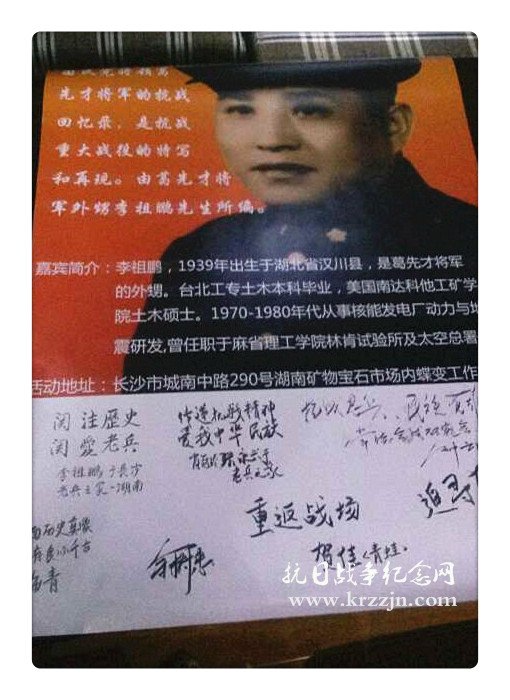 先才将军的抗战
回忆录，是抗战
重大战役的特写
和再现。由葛先才将
军外甥李祖鹏先生所编。
嘉宾简介：李祖鹏，1939年出生于湖北省汉川县，是葛先才将军
的外甥。台北工专土木本科毕业，美国南达科他工矿学
院土木硕士。1970-1980年代从事核能发电厂动力与地
震研发,曾任职于麻省理工学院林肯试验所及太空总署
活动地址：长沙市城南中路290号湖南矿物宝石市场内蝶变工作
関注歷史
関愛老兵
李祖鹏于長沙
老兵之家-湖南
传递抗战精神
爱我中华民族
老兵之家
重返战场
贺佳(青蛙.
追寻
抗日战争纪念网
www.krzzjn.com